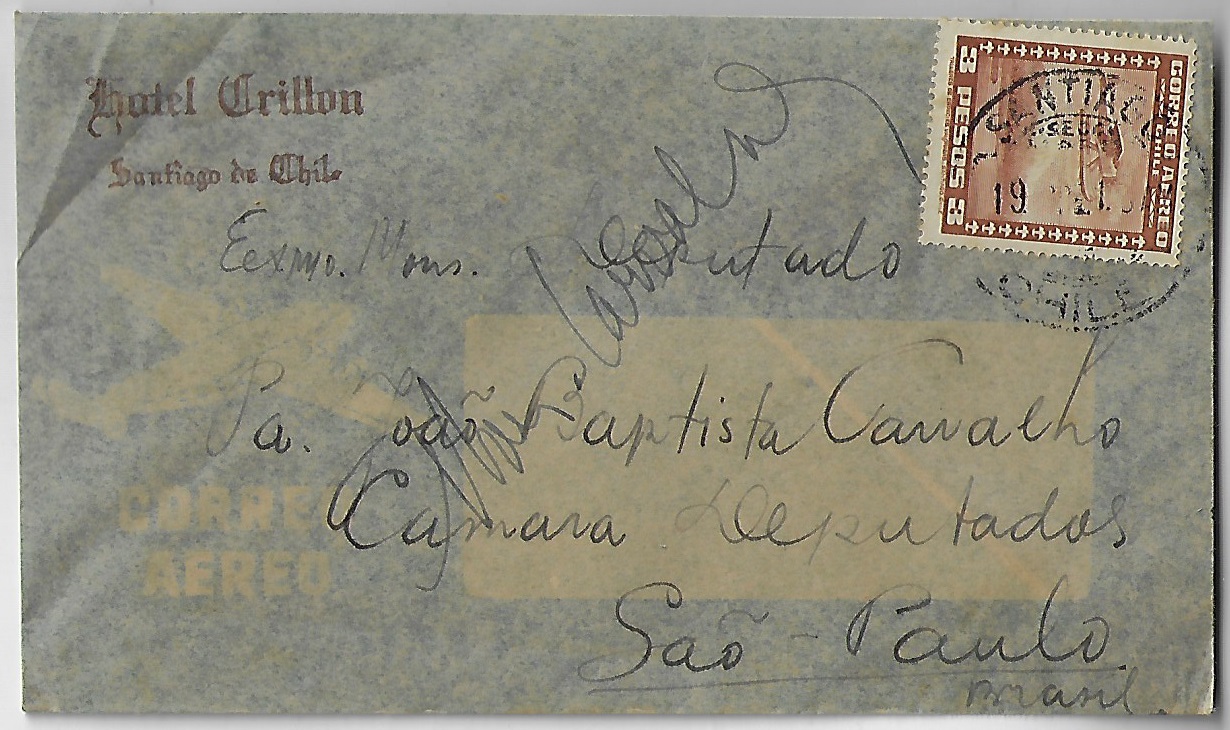 Hotel Crillon
Santiago de Chile
CORREO AEREO
CHILE
3 PESOS 3
SANTIAGO
19
CHILE
Eexmo. Mons. Deputado
Pa. João Baptista Carvalho
Camara Deputados
São-Paulo
Brasil.
CORREO
AEREO